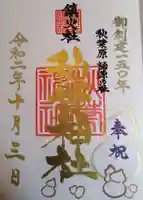 御創建一五〇年
奉祝
秋葉原 総源の社
鎮火社
秋葉神社
令和二年十月三日